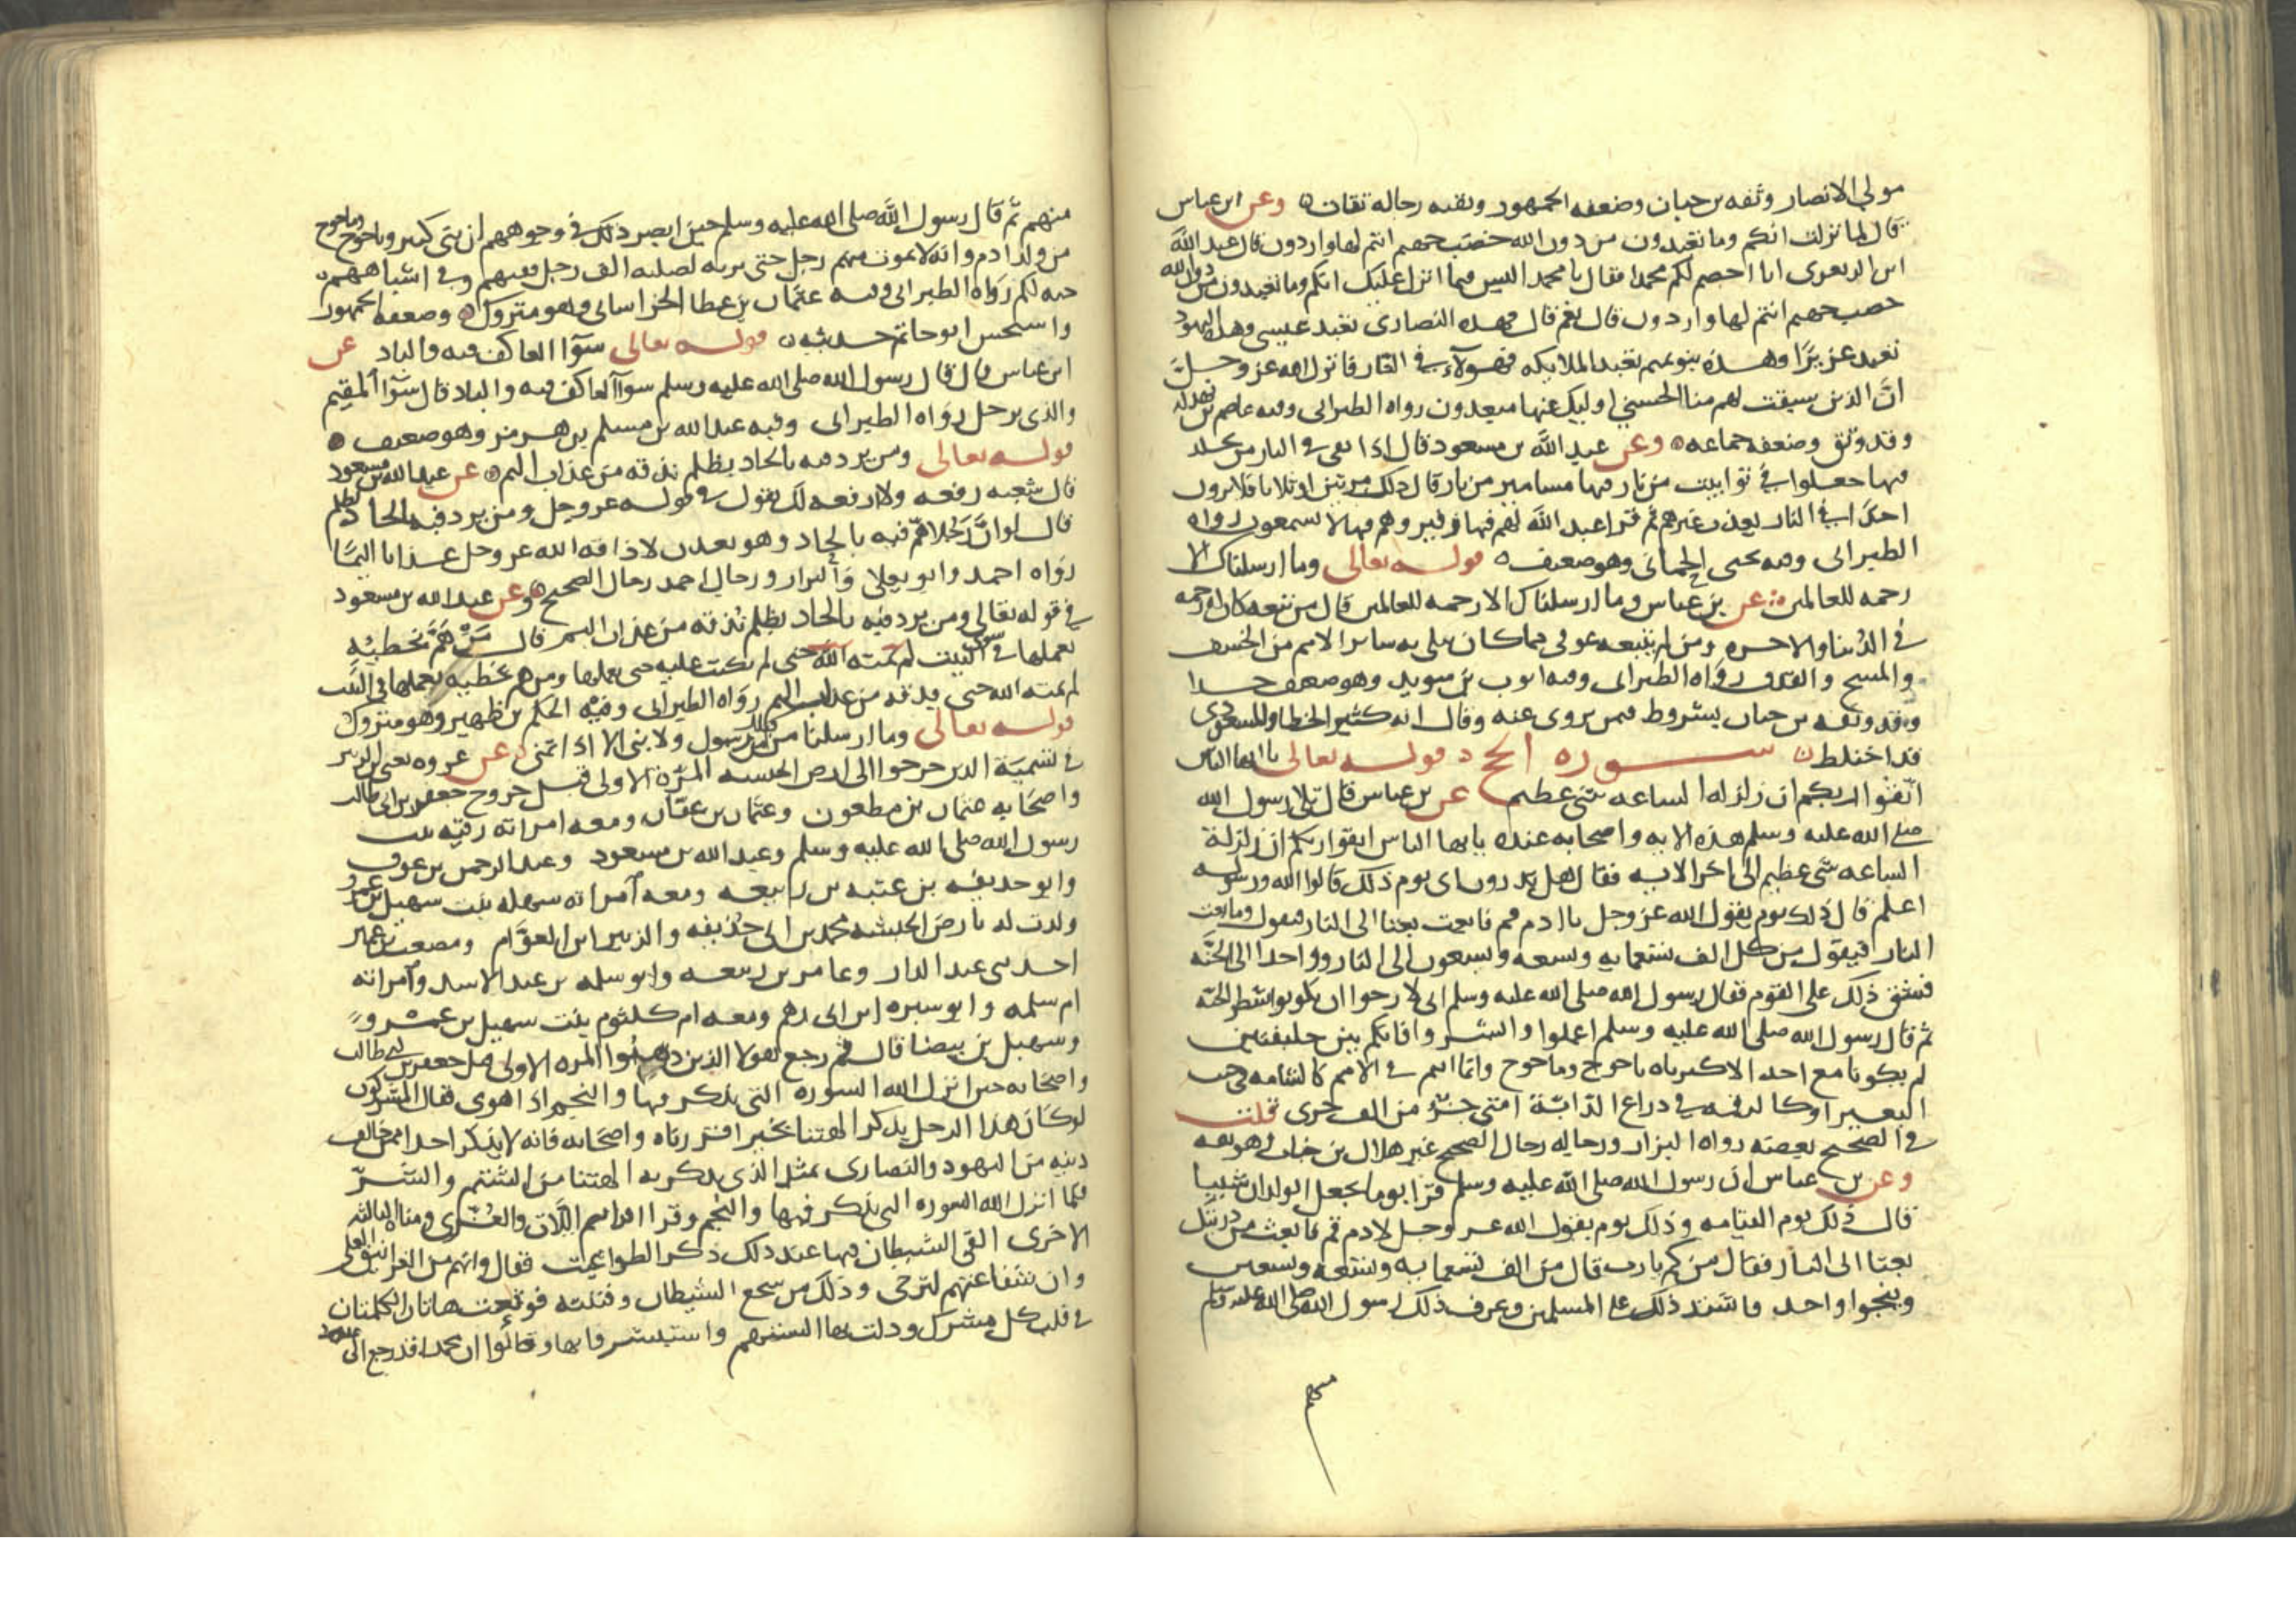 مولى الانصار وثقه بن حبان وضعفه الجمهور وبقيه رجاله ثقات وعن ابن عباس
قال لما نزلت انكم وما تعبدون من دون الله حصب جهنم انتم لها واردون قال عبد الله
ابن الزبعرى انا اخصم لكم محمدا فقال يا محمد اليس فيما انزل عليك انكم وما تعبدون من دون الله
حصب جهنم انتم لها واردون قال نعم قال فهذه النصارى تعبد عيسى وهذه اليهود
تعبد عزيرا وهذه بنو تميم تعبد الملايكه فهولاء في النار فانزل الله عز وجل
ان الذين سبقت لهم منا الحسنى اوليك عنها مبعدون رواه الطبراني وفيه عاصم بن بهدله
وقد وثق وضعفه جماعه وعن عبد الله بن مسعود قال اذا بقي في النار من يخلد
فيها جعلوا في توابيت من نار فيها مسامير من نار قال ذلك مرتين او ثلاثا فلا يرون
احدا في النار يعذب غيرهم ثم قرا عبد الله لهم فيها زفير وهم فيها لا يسمعون رواه
الطبراني وفيه يحيى الحماني وهو ضعيف قوله تعالى وما ارسلناك الا
رحمه للعالمين عن بن عباس وما ارسلناك الا رحمه للعالمين قال من تبعه كان له رحمه
في الدنيا والاخره ومن لم يتبعه عوفي مما كان يبلى به ساير الامم من الخسف
والمسخ والقذف رواه الطبراني وفيه ايوب بن سويد وهو ضعيف جدا
وقد وثقه بن حبان بشروط فيمن يروى عنه وقال انه كثير الخطا والمسعودي
قد اختلط سوره الحج قوله تعالى يا ايها الناس
اتقوا ربكم ان زلزله الساعه شي عظيم عن بن عباس قال تلا رسول الله
صلى الله عليه وسلم هذه الايه واصحابه عنده يا ايها الناس اتقوا ربكم ان زلزلة
الساعه شي عظيم الى اخر الايه فقال هل تدرون اى يوم ذلك قالوا الله ورسوله
اعلم قال ذلك يوم يقول الله عز وجل يا ادم قم فابعث بعثا الى النار فيقول وما بعث
النار فيقول من كل الف تسعمايه وتسعه وتسعون الى النار وواحدا الى الجنه
فشق ذلك على القوم فقال رسول الله صلى الله عليه وسلم انى لارجوا ان تكونوا شطر الجنه
ثم قال رسول الله صلى الله عليه وسلم اعملوا وابشروا فانكم بين خليقتين
لم يكونا مع احد الا كثرتاه ياجوج وماجوج وانما انتم في الامم كالشامه في جنب
البعير او كالرقمه في ذراع الدابة امتى جزء من الف جزى قلت
في الصحيح بعضه رواه البزار ورجاله رجال الصحيح غير هلال بن خباب وهو ثقه
وعن بن عباس ان رسول الله صلى الله عليه وسلم قرا يوما يجعل الولدان شيبا
قال ذلك يوم القيامه وذلك يوم يقول الله عز وجل لادم قم فابعث من ذريتك
بعثا الى النار فقال من كم يا رب قال من الف تسعمايه وتسعه وتسعين
وينجوا واحد فاشتد ذلك على المسلمين وعرف ذلك رسول الله صلى الله عليه وسلم
منهم
منهم ثم قال رسول الله صلى الله عليه وسلم حين ابصر ذلك في وجوههم ان بني كثير وياجوج وماجوج
من ولد ادم وانه لا يموت منهم رجل حتى يرثه لصلبه الف رجل ففيهم وفي اشباههم
جنه لكم رواه الطبراني وفيه عثمان بن عطا الخراساني وهو متروك وضعفه الجمهور
واستحسن ابو حاتم حديثه قوله تعالى سوآ العاكف فيه والباد عن
ابن عباس قال قال رسول الله صلى الله عليه وسلم سوآ العاكف فيه والباد قال سوآ المقيم
والذى يرحل رواه الطبراني وفيه عبد الله بن مسلم بن هرمز وهو ضعيف
قوله تعالى ومن يرد فيه بالحاد بظلم نذقه من عذاب اليم عن عبد الله بن مسعود
قال شعبه رفعه ولا ارفعه لك يقول في قوله عز وجل ومن يرد فيه بالحاد بظلم
قال لو ان رجلا هم فيه بالحاد وهو بعدن لاذاقه الله عز وجل عذابا اليما
رواه احمد وابو يعلى والبزار ورجال احمد رجال الصحيح وعن عبد الله بن مسعود
في قوله تعالى ومن يرد فيه بالحاد بظلم نذقه من عذاب اليم قال من هم بخطيه
يعملها في سوى البيت لم يمته الله حتى لم تكتب عليه حتى يعملها ومن هم بخطيه يعملها في البيت
لم يمته الله حتى يذيقه من عذاب اليم رواه الطبراني وفيه الحكم بن ظهير وهو متروك
قوله تعالى وما ارسلنا من قبلك من رسول ولا نبى الا اذا تمنى عن عروه يعنى ابن الزبير
في تسمية الذين خرجوا الى ارض الحبشه المرة الاولى قبل خروج جعفر بن ابي طالب
واصحابه عثمان بن مظعون وعثمان بن عفان ومعه امراته رقيه بنت
رسول الله صلى الله عليه وسلم وعبد الله بن مسعود وعبد الرحمن بن عوف
وابو حذيفه بن عتبه بن رابيعه ومعه امراته سهله بنت سهيل بن عمرو
ولدت له بارض الحبشه محمد بن ابي حذيفه والزبير ابن العوام ومصعب بن عمير
احد بنى عبد الدار وعامر بن ربيعه وابو سلمه بن عبد الاسد وامراته
ام سلمه وابو سبره ابن ابي رهم ومعه ام كلثوم بنت سهيل بن عمرو
وسهيل بن بيضا قال ثم رجع هولا الذين ذهبوا المره الاولى قبل جعفر بن ابي طالب
واصحابه حين انزل الله السوره التى يذكر فيها والنجم اذا هوى فقال المشركون
لو كان هذا الرجل يذكر الهتنا بخير اقررناه واصحابه فانه لا يذكر احدا ممن خالف
دينه من اليهود والنصارى بمثل الذى يذكر به الهتنا من الشتم والشر
فلما انزل الله السوره التى يذكر فيها والنجم وقرا افرايتم اللات والعزى ومناه الثالثه
الاخرى القى الشيطان فيها عند ذلك ذكر الطواغيت فقال وانهم من الغرانيق العلى
وان شفاعتهم لترتجى وذلك من سجع الشيطان وفتنته فوقعت هاتان الكلمتان
في قلب كل مشرك وذلت بها السنتهم واستبشروا بها وقالوا ان محمدا قد رجع الى